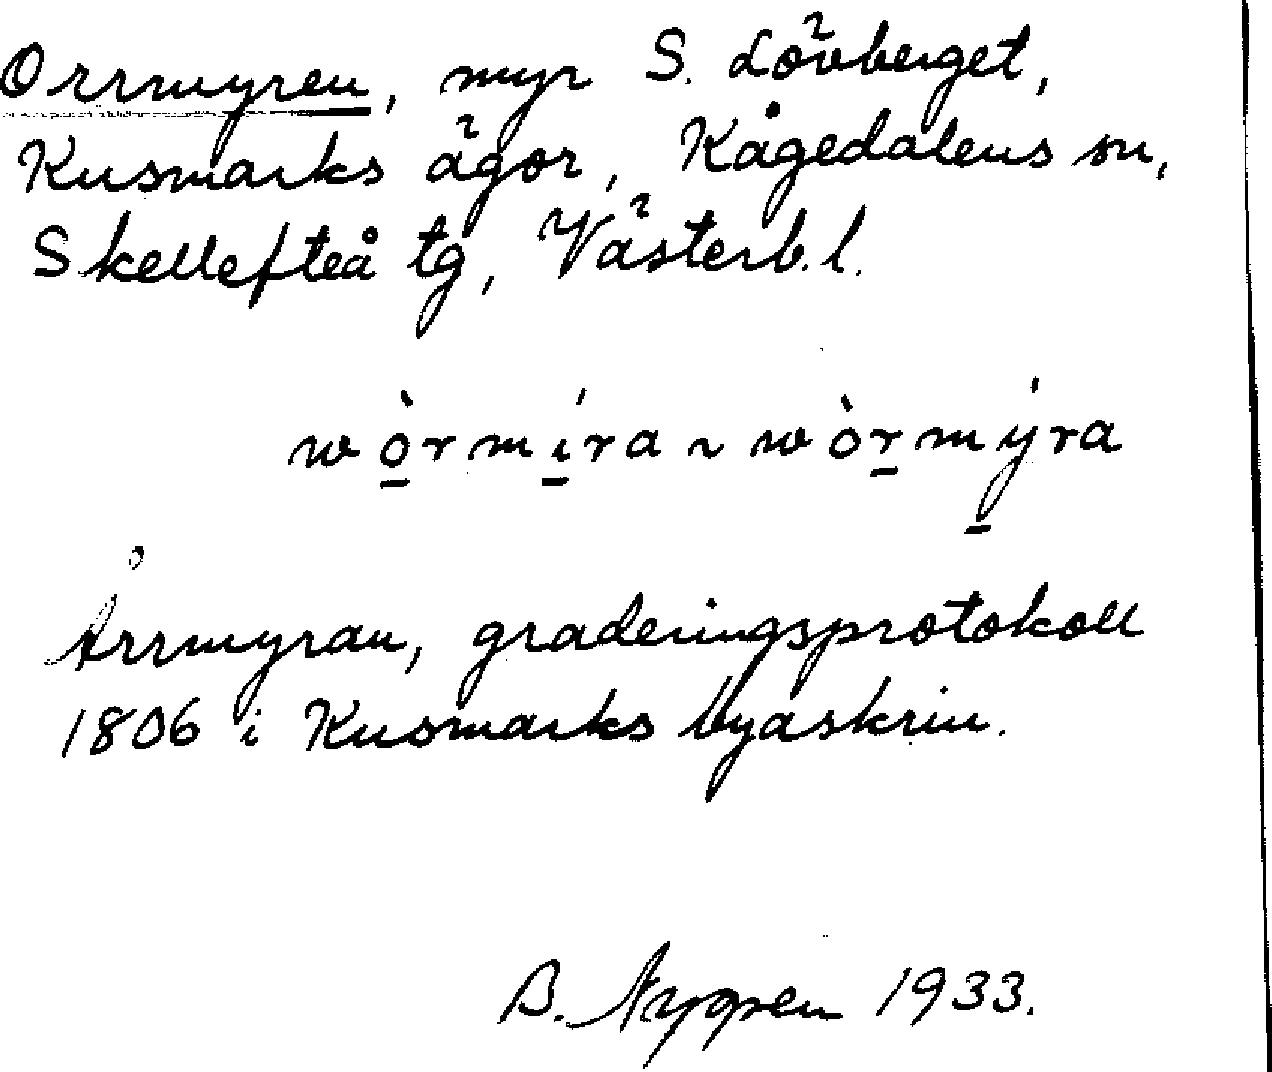 Orrmyren, myr S. Lövberget,
Kusmarks ägor, Kågedalens sn,
Skellefteå tg, Västerb. l.
wò̱rmí̱ra ~ wòṟmý̱ra
Årrmyran, graderingsprotokoll
1806 i Kusmarks byaskrin.
B. Nygren 1933.